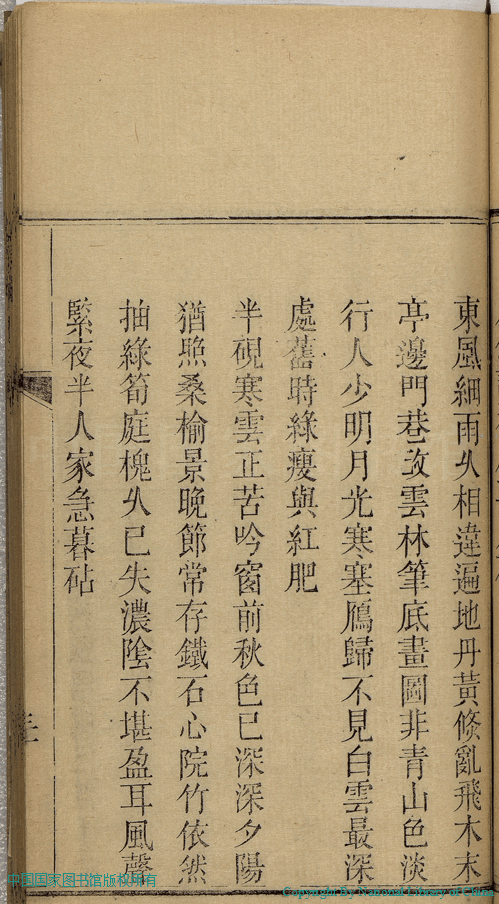 東風細雨乆相違遍地丹黃倏亂飛木末
亭邊門巷改雲林筆底畫圖非青山色淡
行人少明月光寒塞鴈歸不見白雲最深
處舊時綠瘦與紅肥
半硯寒雲正苦吟窗前秋色已深深夕陽
猶照桑榆景晚節常存鐵石心院竹依然
抽綠筍庭槐乆已失濃隂不堪盈耳風聲
緊夜半人家急暮砧
中国国家图书馆版权所有
Copyright by National Library of China